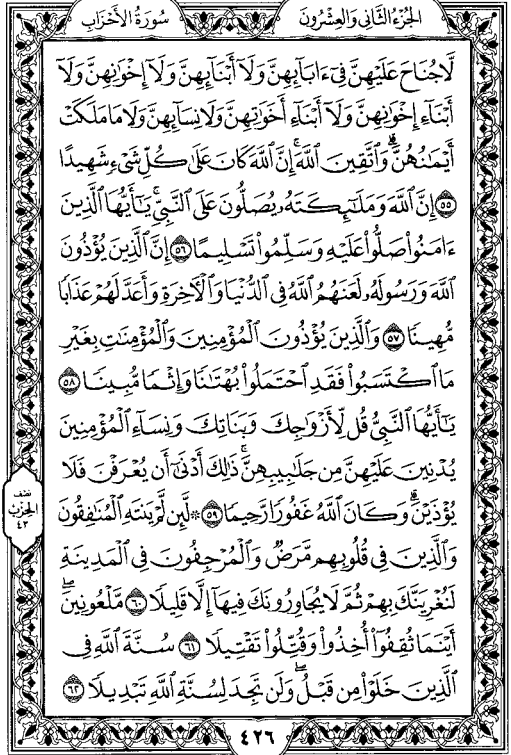 الجزء الثاني والعشرون
سورة الأحزاب
لَّا جُنَاحَ عَلَيْهِنَّ فِىٓ ءَابَآئِهِنَّ وَلَآ أَبْنَآئِهِنَّ وَلَآ إِخْوَٰنِهِنَّ وَلَآ
أَبْنَآءِ إِخْوَٰنِهِنَّ وَلَآ أَبْنَآءِ أَخَوَٰتِهِنَّ وَلَا نِسَآئِهِنَّ وَلَا مَا مَلَكَتْ
أَيْمَٰنُهُنَّ ۗ وَٱتَّقِينَ ٱللَّهَ ۚ إِنَّ ٱللَّهَ كَانَ عَلَىٰ كُلِّ شَىْءٍ شَهِيدًا
٥٥ إِنَّ ٱللَّهَ وَمَلَٰٓئِكَتَهُۥ يُصَلُّونَ عَلَى ٱلنَّبِىِّ ۚ يَٰٓأَيُّهَا ٱلَّذِينَ
ءَامَنُوا۟ صَلُّوا۟ عَلَيْهِ وَسَلِّمُوا۟ تَسْلِيمًا ٥٦ إِنَّ ٱلَّذِينَ يُؤْذُونَ
ٱللَّهَ وَرَسُولَهُۥ لَعَنَهُمُ ٱللَّهُ فِى ٱلدُّنْيَا وَٱلْءَاخِرَةِ وَأَعَدَّ لَهُمْ عَذَابًا
مُّهِينًا ٥٧ وَٱلَّذِينَ يُؤْذُونَ ٱلْمُؤْمِنِينَ وَٱلْمُؤْمِنَٰتِ بِغَيْرِ
مَا ٱكْتَسَبُوا۟ فَقَدِ ٱحْتَمَلُوا۟ بُهْتَٰنًا وَإِثْمًا مُّبِينًا ٥٨
يَٰٓأَيُّهَا ٱلنَّبِىُّ قُل لِّأَزْوَٰجِكَ وَبَنَاتِكَ وَنِسَآءِ ٱلْمُؤْمِنِينَ
يُدْنِينَ عَلَيْهِنَّ مِن جَلَٰبِيبِهِنَّ ۚ ذَٰلِكَ أَدْنَىٰٓ أَن يُعْرَفْنَ فَلَا
يُؤْذَيْنَ ۗ وَكَانَ ٱللَّهُ غَفُورًا رَّحِيمًا ٥٩ ۞ لَّئِن لَّمْ يَنتَهِ ٱلْمُنَٰفِقُونَ
نصف
الحزب
٤٣
وَٱلَّذِينَ فِى قُلُوبِهِم مَّرَضٌ وَٱلْمُرْجِفُونَ فِى ٱلْمَدِينَةِ
لَنُغْرِيَنَّكَ بِهِمْ ثُمَّ لَا يُجَاوِرُونَكَ فِيهَآ إِلَّا قَلِيلًا ٦٠ مَّلْعُونِينَ ۖ
أَيْنَمَا ثُقِفُوٓا۟ أُخِذُوا۟ وَقُتِّلُوا۟ تَقْتِيلًا ٦١ سُنَّةَ ٱللَّهِ فِى
ٱلَّذِينَ خَلَوْا۟ مِن قَبْلُ ۖ وَلَن تَجِدَ لِسُنَّةِ ٱللَّهِ تَبْدِيلًا ٦٢
٤٢٦